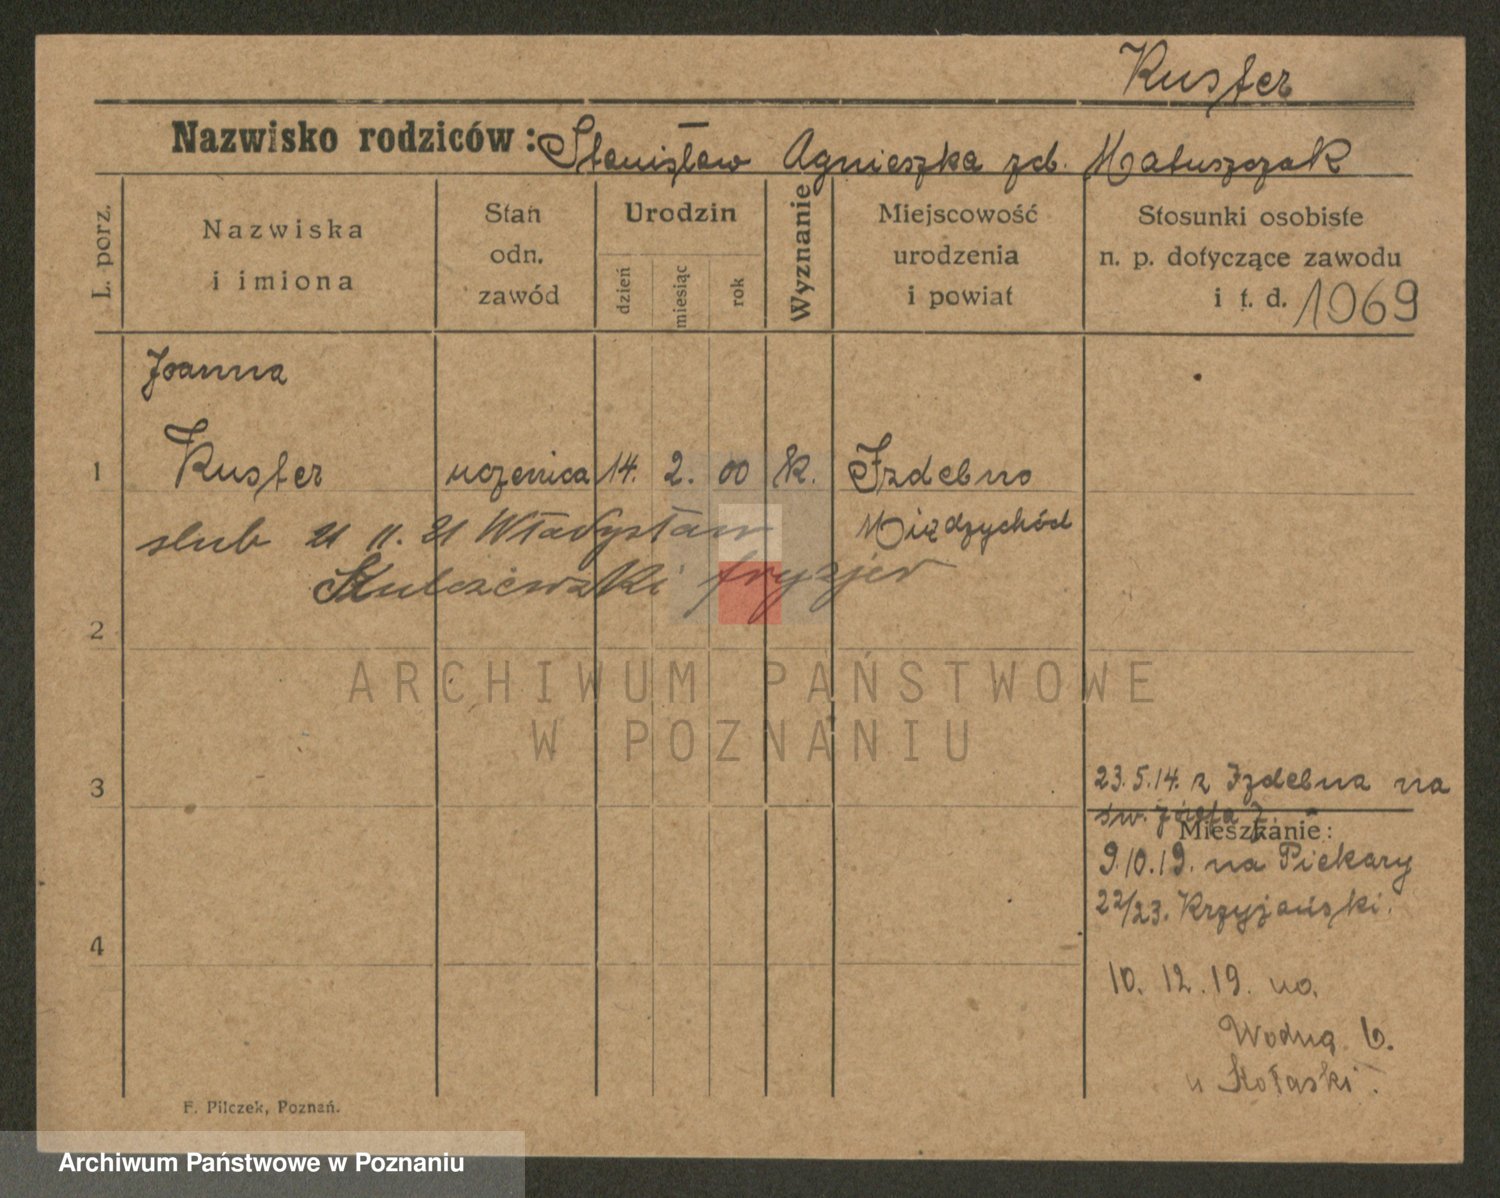 Kuster
Nazwisko rodziców: Stanisław Agnieszka zd. Matuszczak
L. porz.
Nazwiska
i imiona
Stan
odn.
zawód
Urodzin
dzień
miesiąc
rok
Wyznanie
Miejscowość
urodzenia
i powiat
Stosunki osobiste
n. p. dotyczące zawodu
i t. d. 1069
Joanna
1 Kuster uczenica 14. 2. 00 k. Izdebno
Międzychód
ślub 21 11. 21 Władysław
Skulczewski fryzjer
2
ARCHIWUM PAŃSTWOWE
W POZNANIU
3
23.5.14. z Izdebna na
św. Józefa 7.
Mieszkanie:
9.10.19. na Piekary
22/23. Krzyjański.
4
10. 12. 19. na
Wodną 6.
u Kołaski.
F. Pilczek, Poznań.
Archiwum Państwowe w Poznaniu